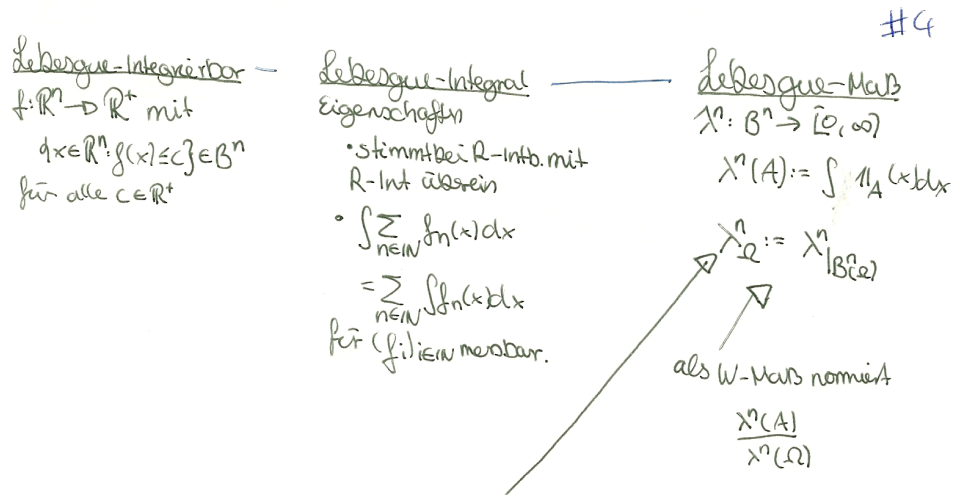 #4
Lebesgue-Integrierbar
f: ℝⁿ → ℝ⁺ mit
{x∈ℝⁿ: f(x) ≤ c} ∈ Bⁿ
für alle c∈ℝ⁺
Lebesgue-Integral
Eigenschaftn
• stimmt bei R-Intb. mit
R-Int überein
• ∫ ∑_{n∈ℕ} fₙ(x) dx
= ∑_{n∈ℕ} ∫ fₙ(x) dx
für (fᵢ)_{i∈ℕ} messbar.
Lebesgue-Maß
λⁿ: Bⁿ → [0, ∞)
λⁿ(A) := ∫ 𝟙_A (x) dx
λⁿ_Ω := λⁿ|_{Bⁿ(Ω)}
als W-Maß normiert
λⁿ(A)
λⁿ(Ω)